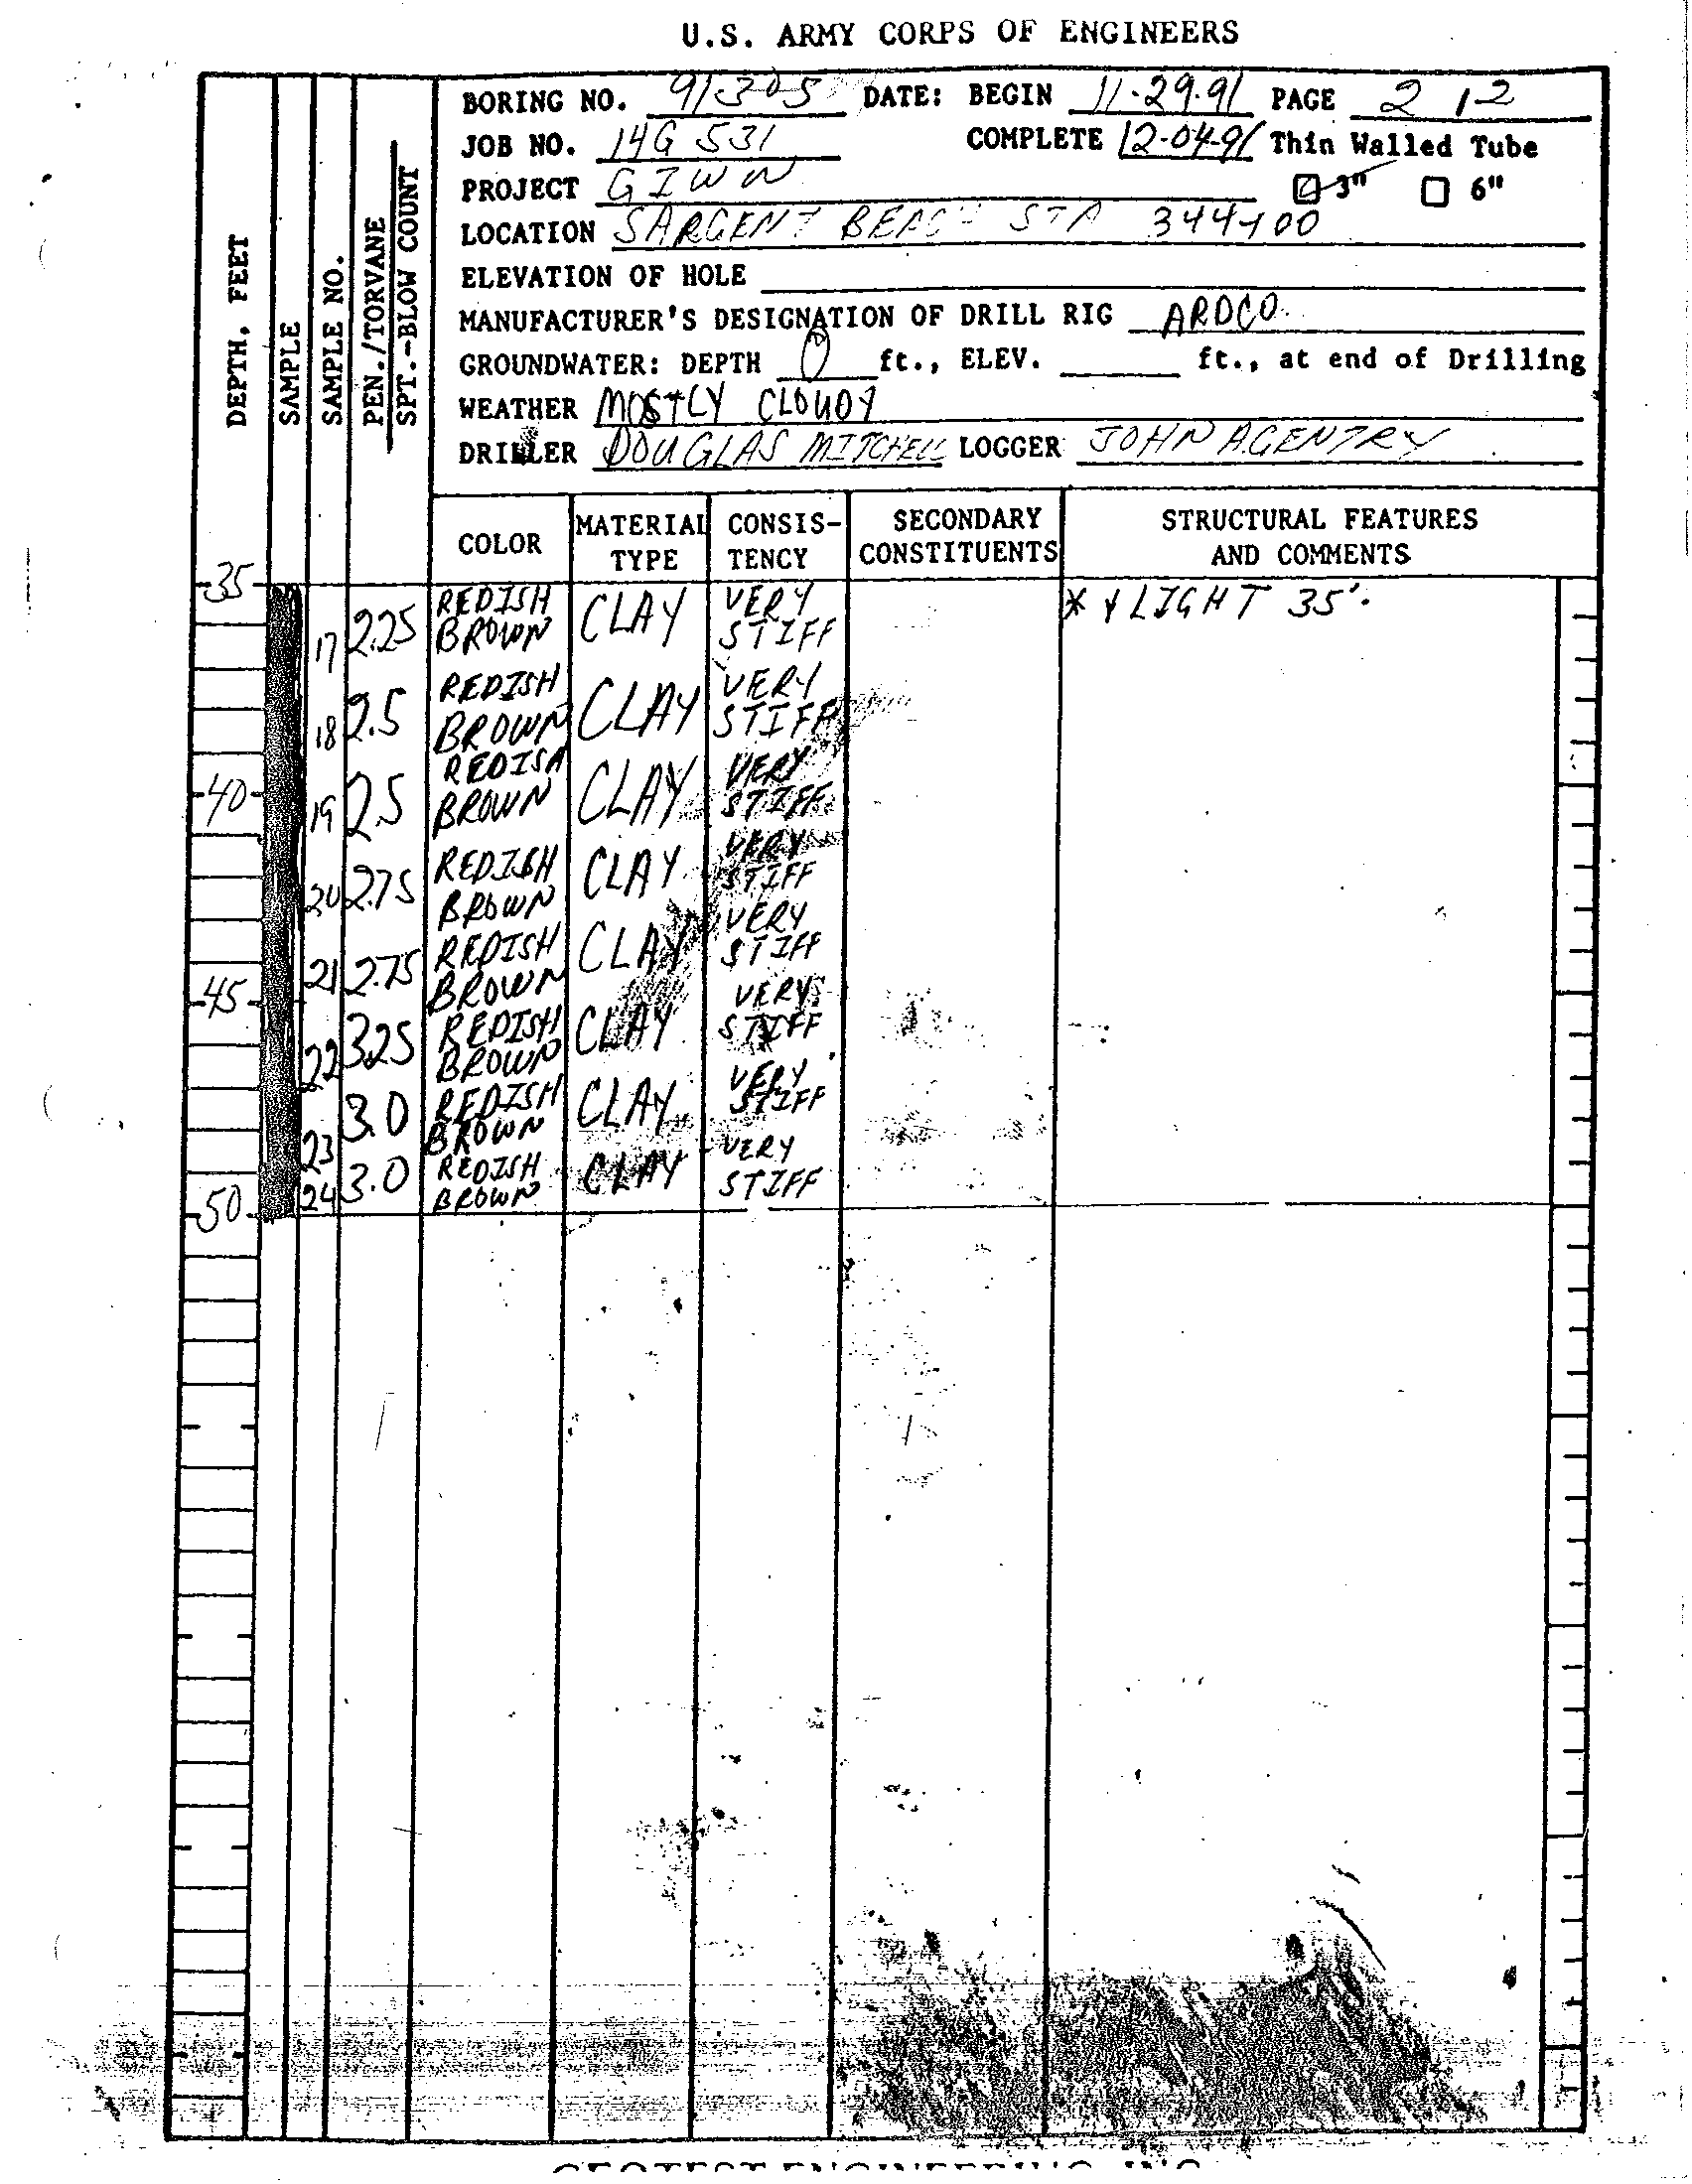 U.S. ARMY CORPS OF ENGINEERS
BORING NO. 91-305 DATE: BEGIN 11-29-91 PAGE 2 / 2
JOB NO. 14G 531 COMPLETE 12-04-91 Thin Walled Tube
PROJECT GIWW 3" 6"
LOCATION SARGENT BEACH STA 344+00
ELEVATION OF HOLE
MANUFACTURER'S DESIGNATION OF DRILL RIG ARDCO
GROUNDWATER: DEPTH 0 ft., ELEV. ft., at end of Drilling
WEATHER MOSTLY CLOUDY
DRILLER DOUGLAS MITCHELL LOGGER JOHN A GENTRY
DEPTH, FEET
SAMPLE
SAMPLE NO.
PEN./TORVANE
SPT.-BLOW COUNT
COLOR MATERIAL TYPE CONSIS-TENCY SECONDARY CONSTITUENTS STRUCTURAL FEATURES AND COMMENTS
35
17 2.25 REDISH BROWN CLAY VERY STIFF * LIGHT 35'.
18 2.5 REDISH BROWN CLAY VERY STIFF
40 19 2.5 REDISH BROWN CLAY VERY STIFF
20 2.75 REDISH BROWN CLAY VERY STIFF
21 2.75 REDISH BROWN CLAY VERY STIFF
45
22 3.25 REDISH BROWN CLAY VERY STIFF
23 3.0 REDISH BROWN CLAY VERY STIFF
24 3.0 REDISH BROWN CLAY VERY STIFF
50